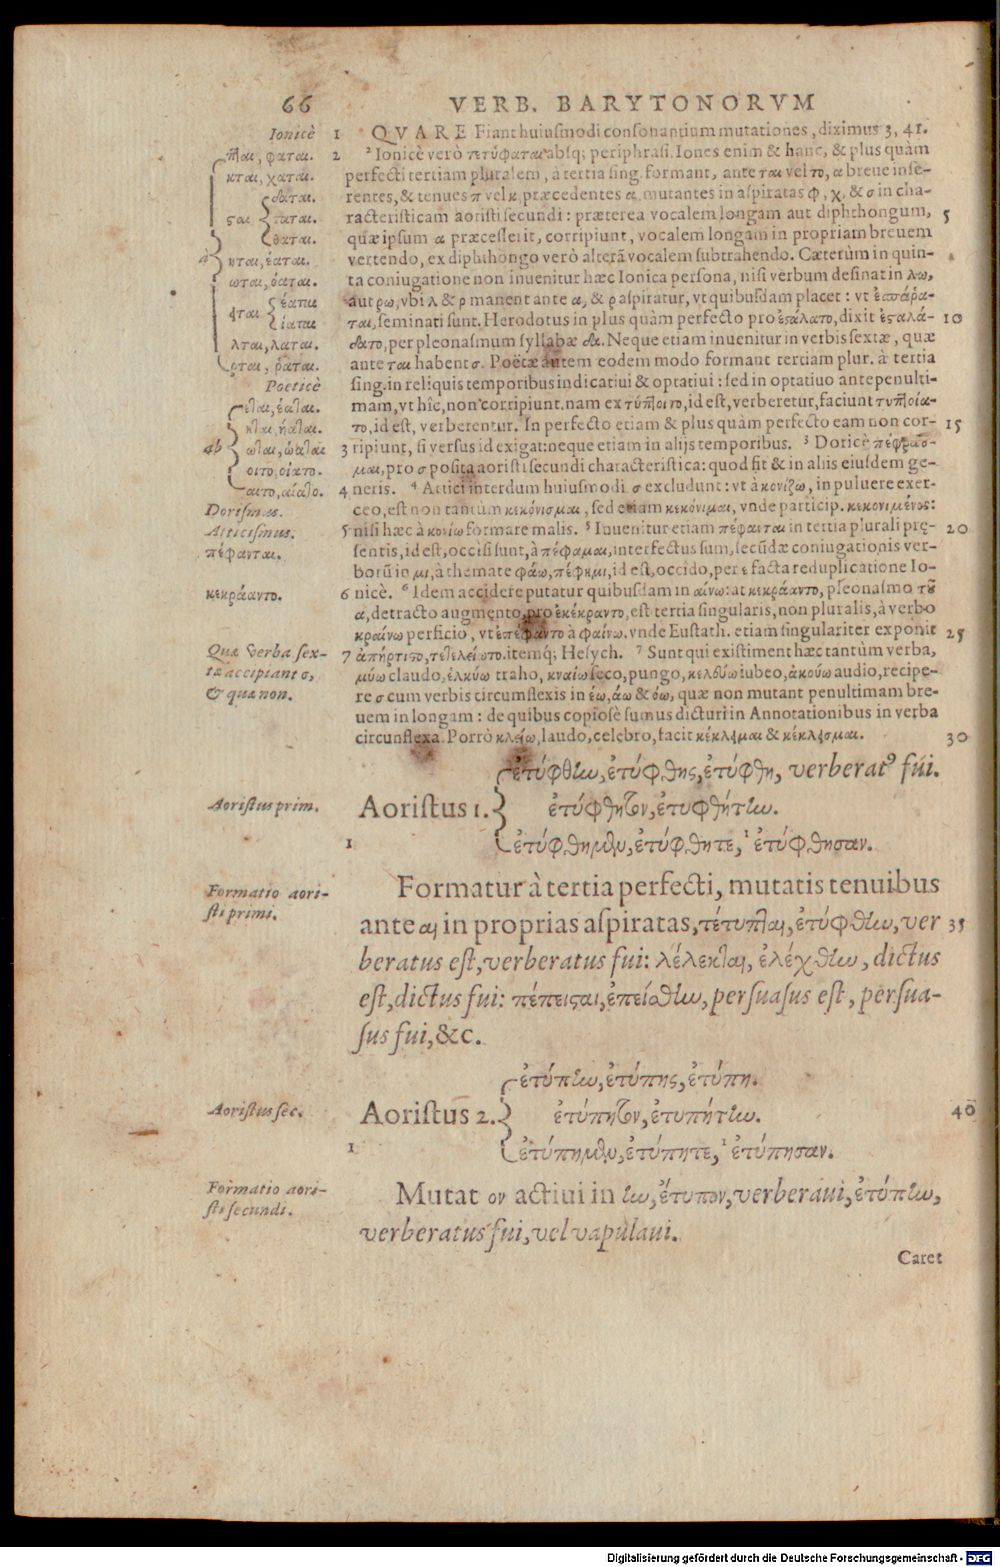 66 VERB. BARYTONORVM
Ionicè
πται, φαται.
κται, χαται.
δαται.
σαι ταται.
θαται.
à νται, έαται.
ωται, όαται.
ειται έαται
ίαται
λται, λαται.
ρται, ραται.
Poëticè
εται, έαται.
ηται, ήαται.
ab ωται, ώαται
οιτο, οίατο.
αιτο, αίατο.
Dorismus.
Atticismus.
πέφανται.
κεκράαντο.
Quæ verba sex-
tæ accipiant σ,
& quæ non.
1 QVARE Fiant huiusmodi consonantium mutationes, diximus 3, 41.
2 ² Ionicè verò τετύφαται absq; periphrasi. Iones enim & hanc, & plus quàm
perfecti tertiam pluralem, à tertia sing. formant, ante ται vel το, α breue inse-
rentes, & tenues π vel κ præcedentes α mutantes in aspiratas φ, χ, & σ in cha-
racteristicam aoristi secundi: præterea vocalem longam aut diphthongum, 5
quæ ipsum α præcesserit, corripiunt, vocalem longam in propriam breuem
vertendo, ex diphthongo verò alterā vocalem subtrahendo. Cæterùm in quin-
ta coniugatione non inuenitur hæc Ionica persona, nisi verbum desinat in λω,
aut ρω, vbi λ & ρ manent ante α, & ρ aspiratur, vt quibusdam placet: vt ἐσπάρα-
ται, seminati sunt. Herodotus in plus quàm perfecto pro ἐσάλατο, dixit ἐσαλά- 10
δατο, per pleonasmum syllabæ δα. Neque etiam inuenitur in verbis sextæ, quæ
ante ται habent σ. Poëtæ autem eodem modo formant tertiam plur. à tertia
sing. in reliquis temporibus indicatiui & optatiui: sed in optatiuo antepenulti-
mam, vt hîc, non corripiunt. nam ex τύπτοιτο, id est, verberetur, faciunt τυπτοία-
το, id est, verberentur. In perfecto etiam & plus quàm perfecto eam non cor- 15
3 ripiunt, si versus id exigat: neque etiam in alijs temporibus. ³ Doricè πέφρασ-
μαι, pro σ posita aoristi secundi characteristica: quod fit & in aliis eiusdem ge-
4 neris. ⁴ Attici interdum huiusmodi σ excludunt: vt à κονίζω, in puluere exer-
ceo, est non tantùm κεκόνισμαι, sed etiam κεκόνιμαι, vnde particip. κεκονιμένος:
5 nisi hæc à κονίω formare malis. ⁵ Inuenitur etiam πέφανται in tertia plurali præ- 20
sentis, id est, occisi sunt, à πέφαμαι, interfectus sum, secūdæ coniugationis ver-
borū in μι, à themate φάω, πέφημι, id est, occido, per ε facta reduplicatione Io-
6 nicè. ⁶ Idem accidere putatur quibusdam in αίνω: at κεκράαντο, pleonasmo τοῦ
α, detracto augmento, pro ἐκέκραντο, est tertia singularis, non pluralis, à verbo
κραίνω perficio, vt ἐπέφαντο à φαίνω. vnde Eustath. etiam singulariter exponit 25
7 ἀπήρτιστο, τετελείωτο. itemq; Hesych. ⁷ Sunt qui existiment hæc tantùm verba,
μύω claudo, ἑλκύω traho, κναίω seco, pungo, κελεύω iubeo, ἀκούω audio, recipe-
re σ cum verbis circumflexis in έω, άω & όω, quæ non mutant penultimam bre-
uem in longam: de quibus copiosè sumus dicturi in Annotationibus in verba
circunflexa. Porrò κλείω, laudo, celebro, facit κέκλειμαι & κέκλεισμαι. 30
ἐτύφθην, ἐτύφθης, ἐτύφθη, verberatus fui.
Aoristus prim. Aoristus 1. ἐτύφθητον, ἐτυφθήτην.
1 ἐτύφθημεν, ἐτύφθητε, ¹ ἐτύφθησαν.
Formatio aori-
sti primi.
Formatur à tertia perfecti, mutatis tenuibus
ante αι in proprias aspiratas, τέτυπται, ἐτύφθην, ver 35
beratus est, verberatus fui: λέλεκται, ἐλέχθην, dictus
est, dictus fui: πέπεισαι, ἐπείσθην, persuasus est, persua-
sus fui, &c.
ἐτύπην, ἐτύπης, ἐτύπη.
Aoristus sec. Aoristus 2. ἐτύπητον, ἐτυπήτην. 40
1 ἐτύπημεν, ἐτύπητε, ¹ ἐτύπησαν.
Formatio aori-
sti secundi.
Mutat ον actiui in ην, ἔτυπον, verberaui, ἐτύπην,
verberatus fui, vel vapulaui.
Caret
Digitalisierung gefördert durch die Deutsche Forschungsgemeinschaft - DFG